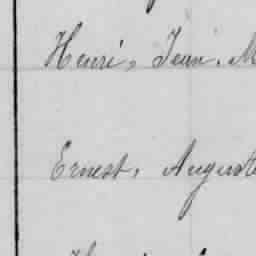 Henri, Jean, M
Ernest, Auguste